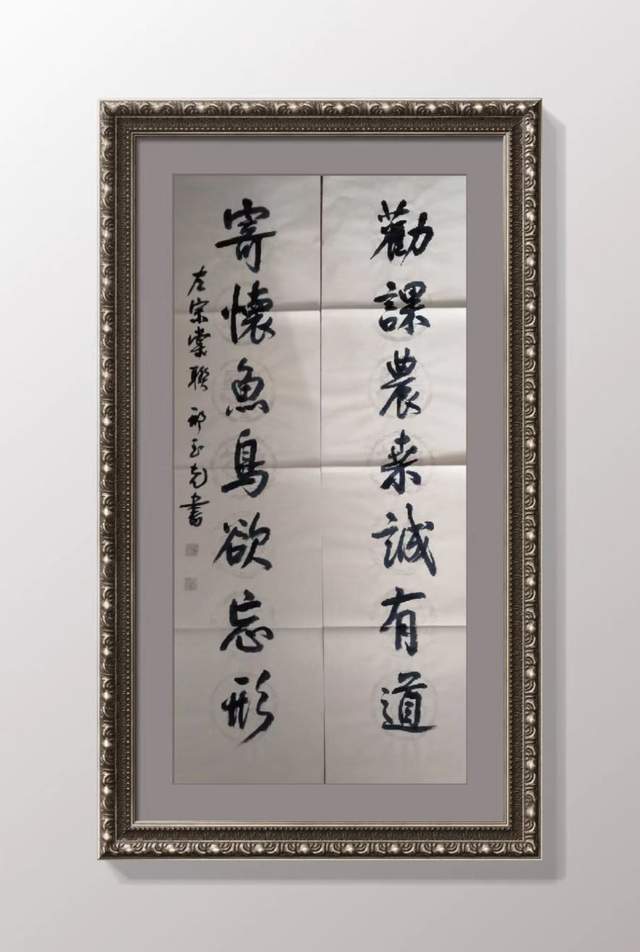 勸課農桒誠有道
寄懷魚鳥欲忘形
左宗棠聯 玉書